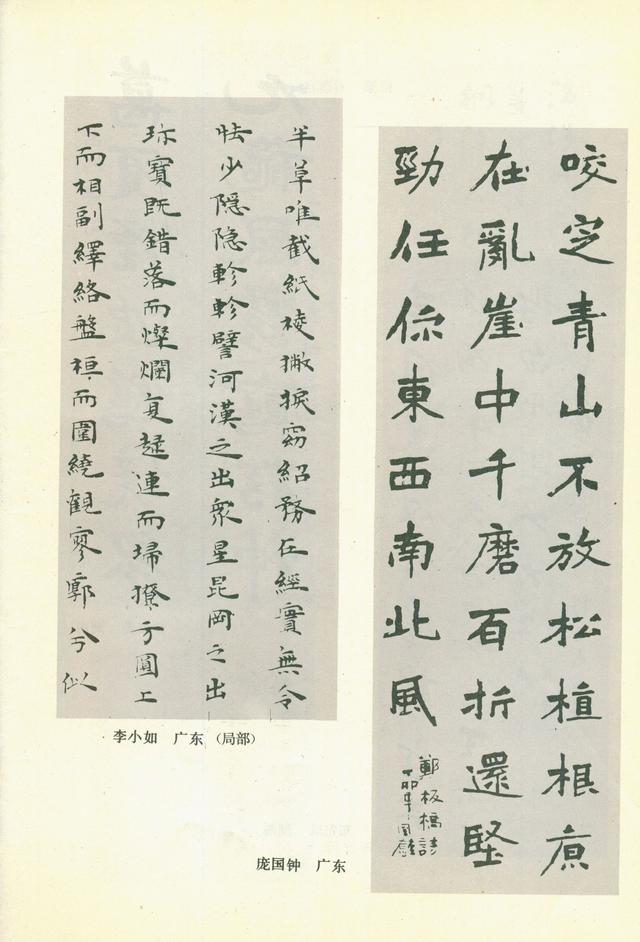 咬定青山不放松植根原
在亂崖中千磨百折還堅
勁任你東西南北風
鄭板橋詩
丁卯年國
庞国钟 广东
半草唯截紙棱撇捩窈紹務在經實無令
怯少隱隱軫軫譬河漢之出衆星昆岡之出
珍寶既錯落而燦爛复趢連而埽撩方圓上
下而相副繹絡盤桓而圍繞觀寥郭兮似
李小如 广东 （局部）